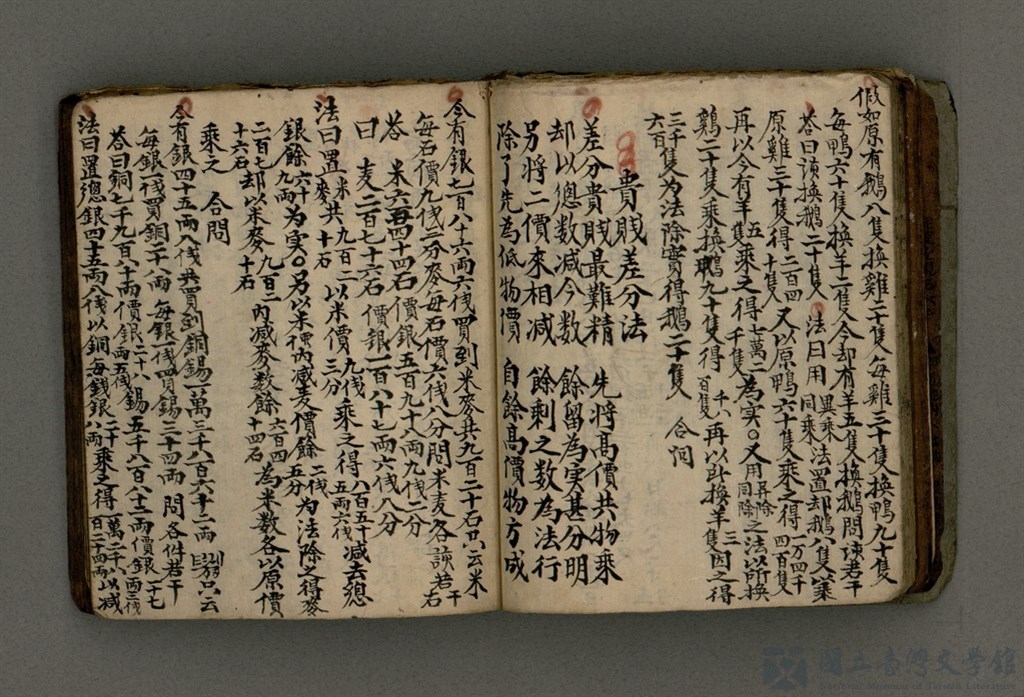 假如原有鵝八隻換雞二十隻每雞三十隻換鴨九十隻
每鴨六十隻換羊二隻今却有羊五隻換鵝問該若干
答曰該換鵝二十隻 法曰用異乘同乘法置却鵝八隻以乘
原雞三十隻得二百四十隻又以原鴨六十隻乘之得一万四千四百隻
再以今有羊五隻乘之得七萬二千隻為實○又用異除同除之法以所換
鷄二十隻乘換鴨九十隻得千八百隻再以此換羊二隻因之得
三千六百隻為法除實得鵝二十隻 合問
貴賤差分法
差分貴賤最難精 先將高價共物乘
却以總数減今数 餘留為實甚分明
另將二價來相減 餘剩之数為法行
除了先為低物價 自餘高價物方成
今有銀七百八十六兩六伐買到米麥共九百二十石只云米
每石價九伐三分麥每石價六伐八分問米麦各該若干
答曰 米六百四十四石 價銀五百九十八兩九伐二分
麦二百七十六石 價銀一百八十七兩六伐八分
法曰置米麥共九百二十石以米價九伐三分乘之得八百五十五兩六伐減去總
銀餘六十九兩為実○另以米價內減麦價餘二伐五分為法除之得麥
二百七十六石却以米麥九百二十石內減麥数餘六百四十四石為米数各以原價
乘之 合問
今有銀四十五兩八伐共買到銅錫一萬三千八百六十二兩只云
每銀一伐買銅二十八兩每銀一伐買錫三十四兩問各件若干
答曰銅七千九百八十兩價銀二十八兩五伐錫五千八百八十二兩價銀一十七兩三伐
法曰置總銀四十五兩八伐以銅每錢銀二十八兩乘之得一萬二千八百二十四兩以減